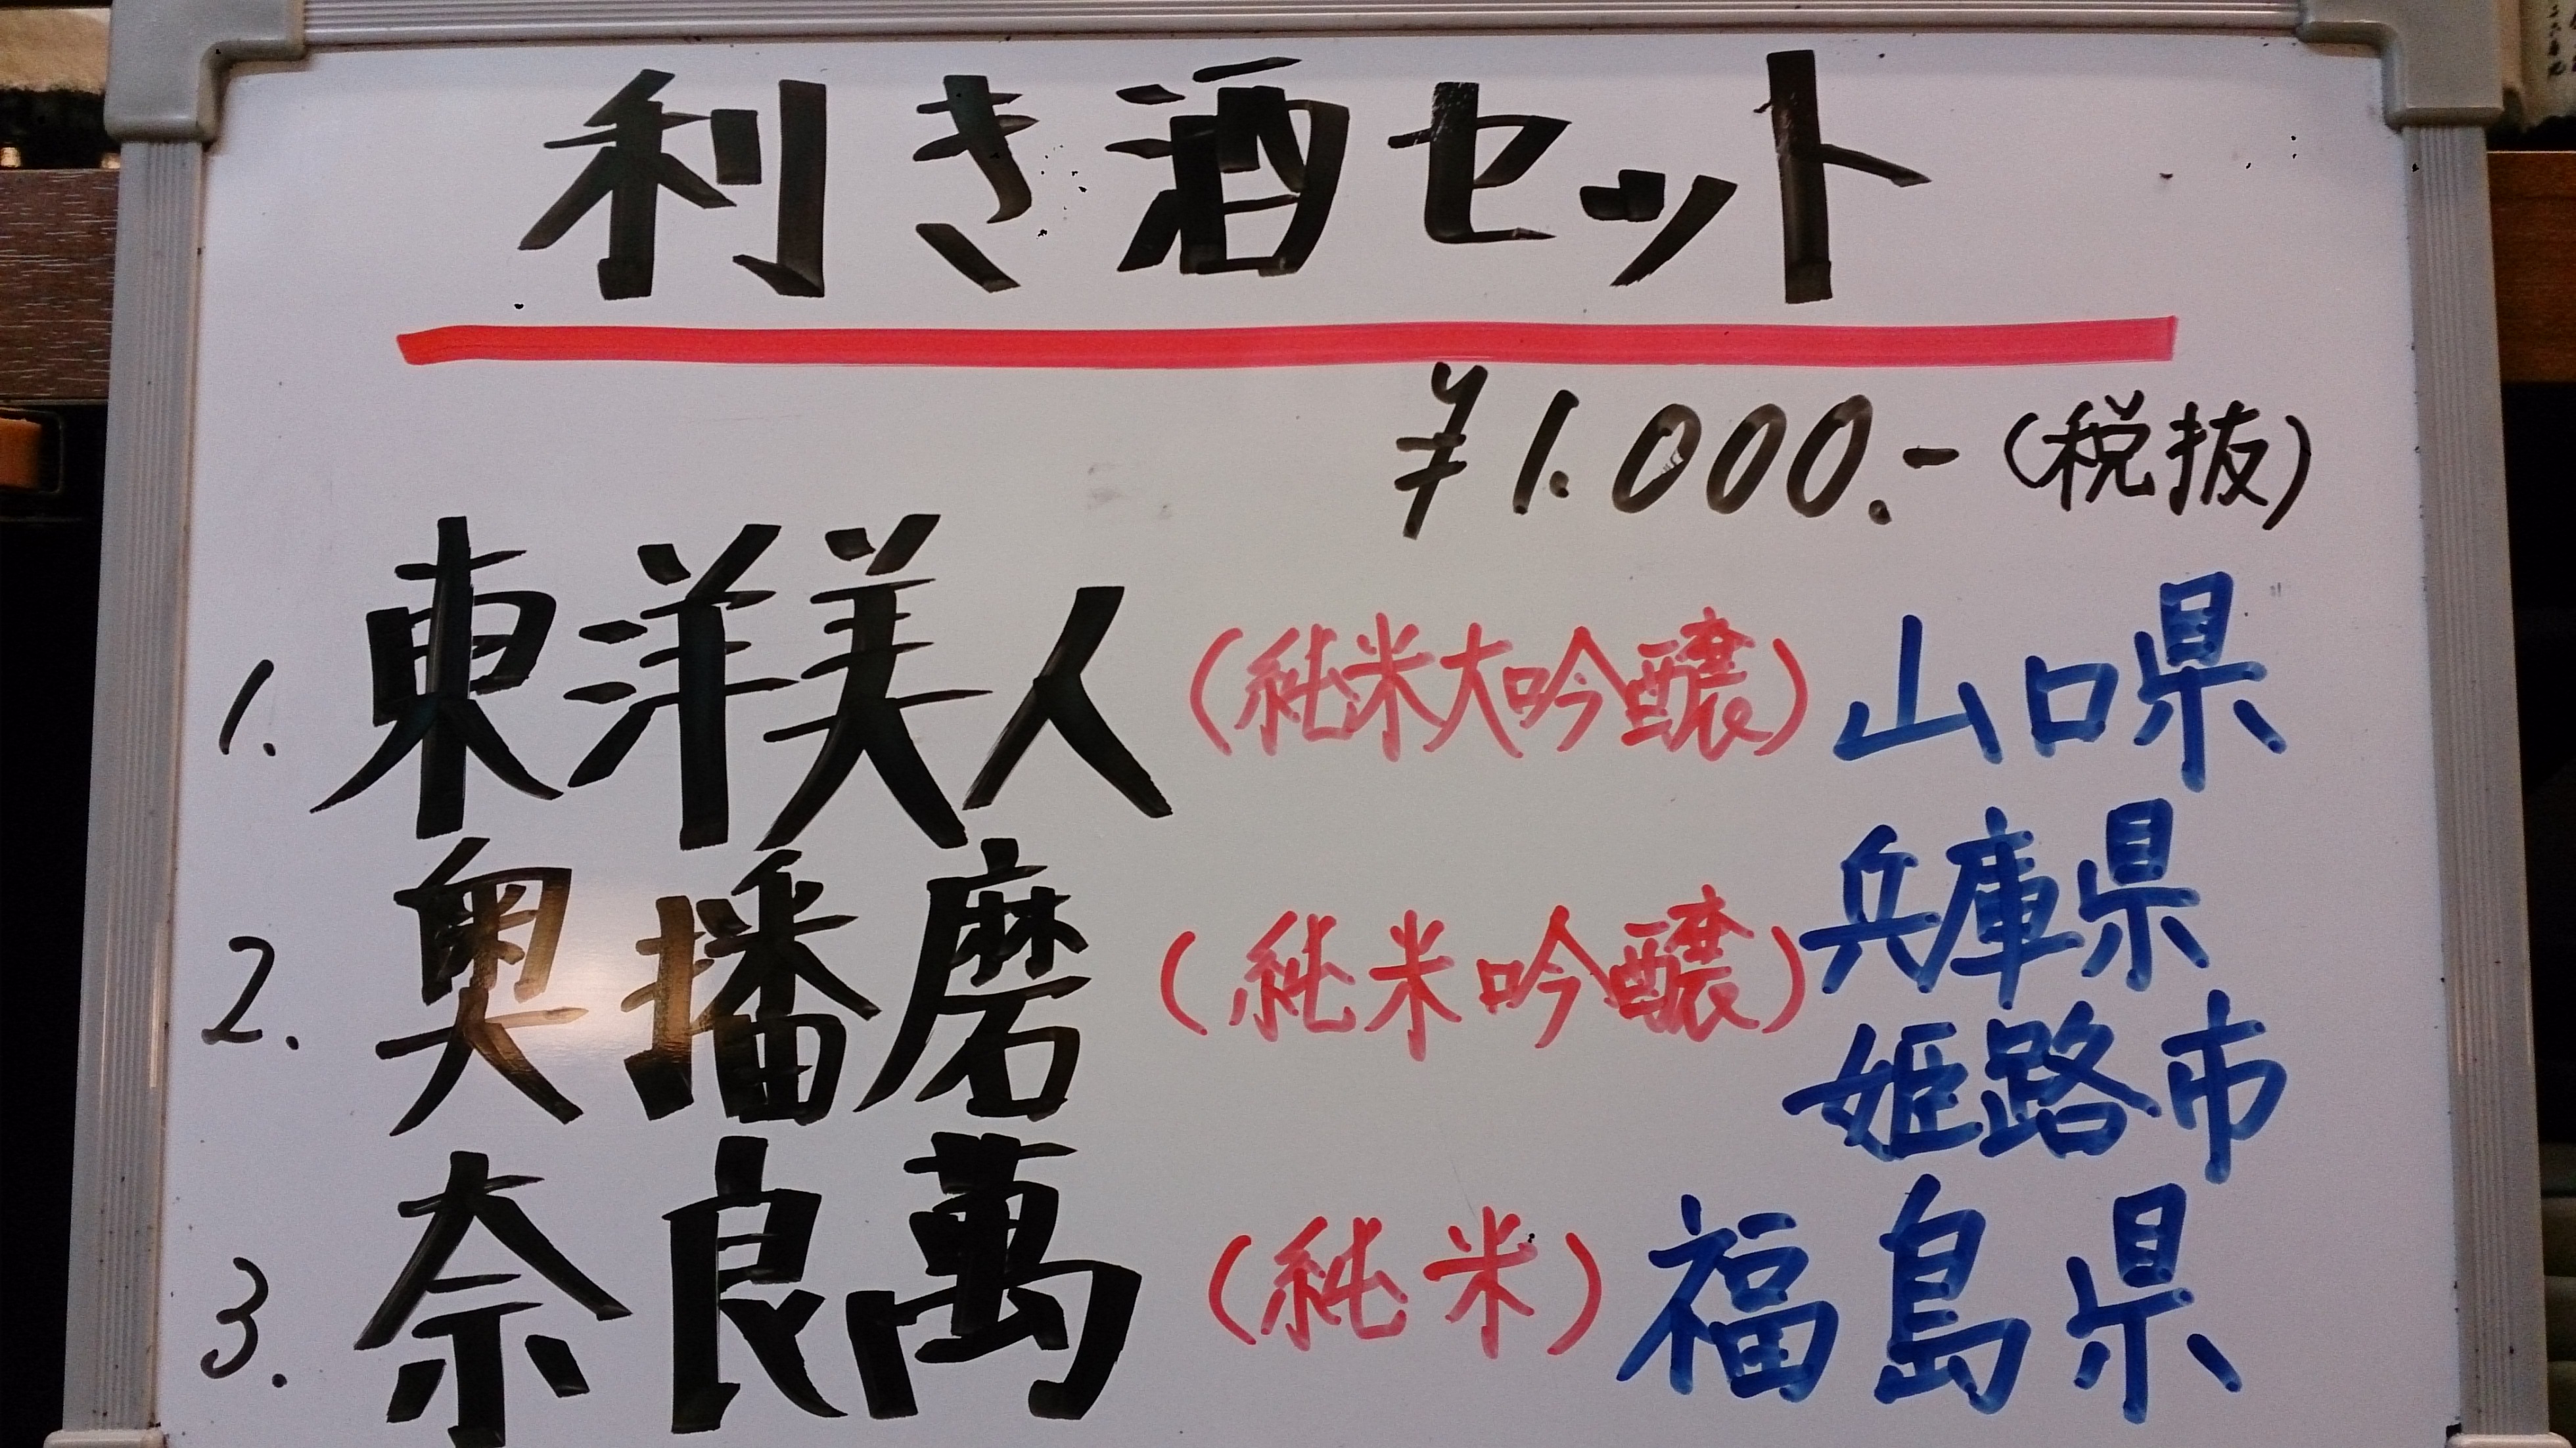 利き酒セット
¥1.000.-(税抜)
1. 東洋美人 (純米大吟醸) 山口県
2. 奥播磨 (純米吟醸) 兵庫県
姫路市
3. 奈良萬 (純米) 福島県